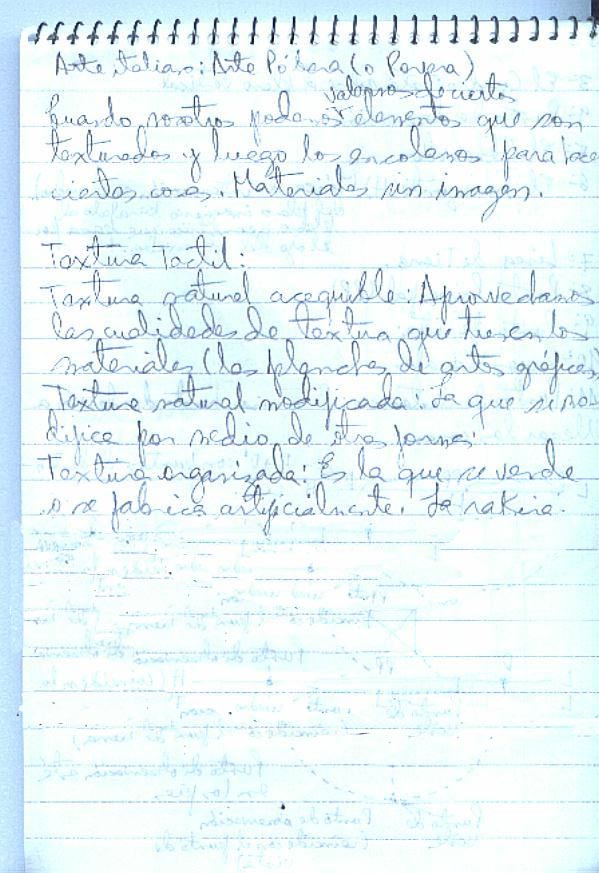 Arte italiano: Arte Póbera (o Povera)
valernos de ciertos
Cuando nosotros podemos elementos que son
texturados y luego los encolamos para hace
ciertas cosas. Materiales sin imagen.
Textura Tactil:
Textura natural acequible: Aprovechamos
las cualidades de textura que tienen los
materiales (las planchas de artes gráficas)
Textura natural modificada: La que se mo-
difica por medio de otra forma.
Textura organizada: Es la que se vende
o se fabrica artificialmente. La